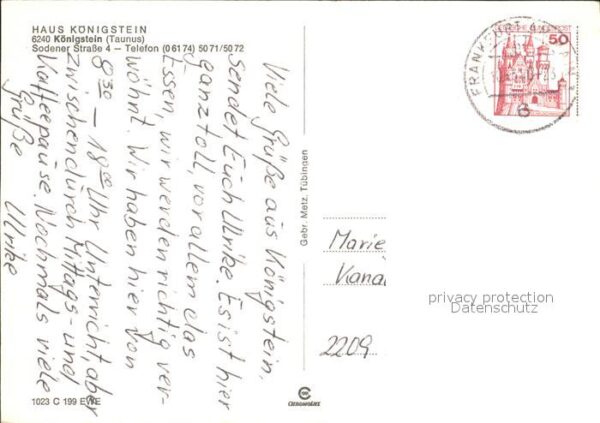 HAUS KÖNIGSTEIN
6240 Königstein (Taunus)
Sodener Straße 4 — Telefon (0 61 74) 50 71/50 72
Viele Grüße aus Königstein,
sendet Euch Ulrike. Es ist hier
ganz toll, vor allem das
Essen, wir werden richtig ver-
wöhnt. Wir haben hier von
8³⁰ – 18⁰⁰ Uhr Unterricht, aber
zwischendurch Mittags- und
Kaffeepause. Nochmals viele
Grüße
Ulrike
1023 C 199 EWE
Gebr. Metz, Tübingen
CEKOMPAKT
50
FRANKFURT
6
Marie
Kana
2209
privacy protection
Datenschutz